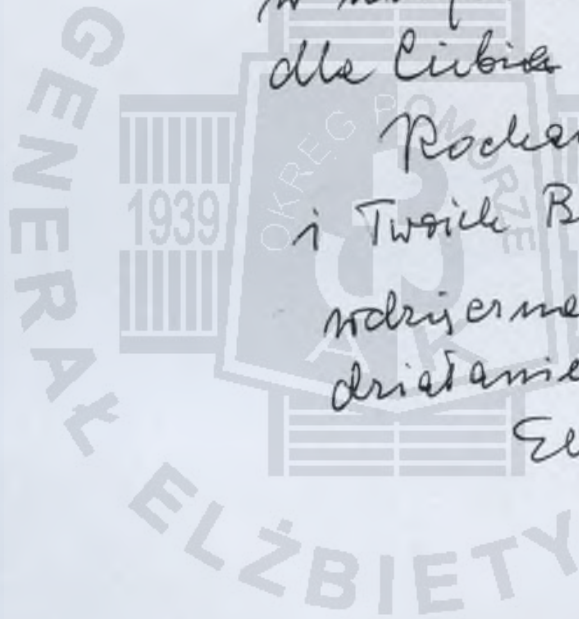 dla Ciebie
Kochan
i Twoich B
wdzięczna
działanie
GENERAŁ ELŻBIETY
1939
OKRĘG POMORZE
AK